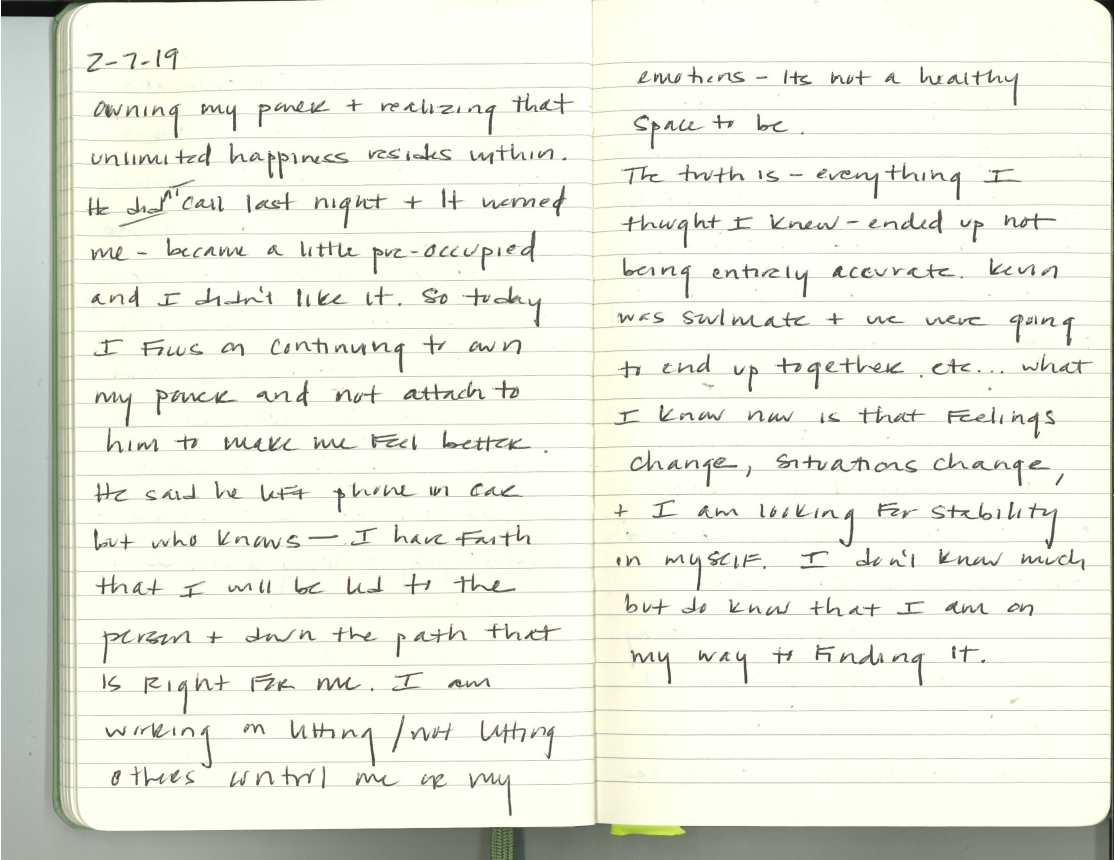 2-7-19
owning my power + realizing that
unlimited happiness resides within.
He didn't call last night + It worried
me - became a little pre-occupied
and I didn't like it. So today
I Focus on continuing to own
my power and not attach to
him to make me Feel better.
He said he left phone in car
but who knows — I have Faith
that I will be led to the
person + down the path that
is Right For me. I am
working on letting / not letting
others control me or my
emotions - Its not a healthy
space to be.
The truth is - everything I
thought I knew - ended up not
being entirely accurate. Kevin
was soulmate + we were going
to end up together. etc... what
I know now is that Feelings
change, situations change,
+ I am looking For stability
in myself. I don't know much
but do know that I am on
my way to Finding It.